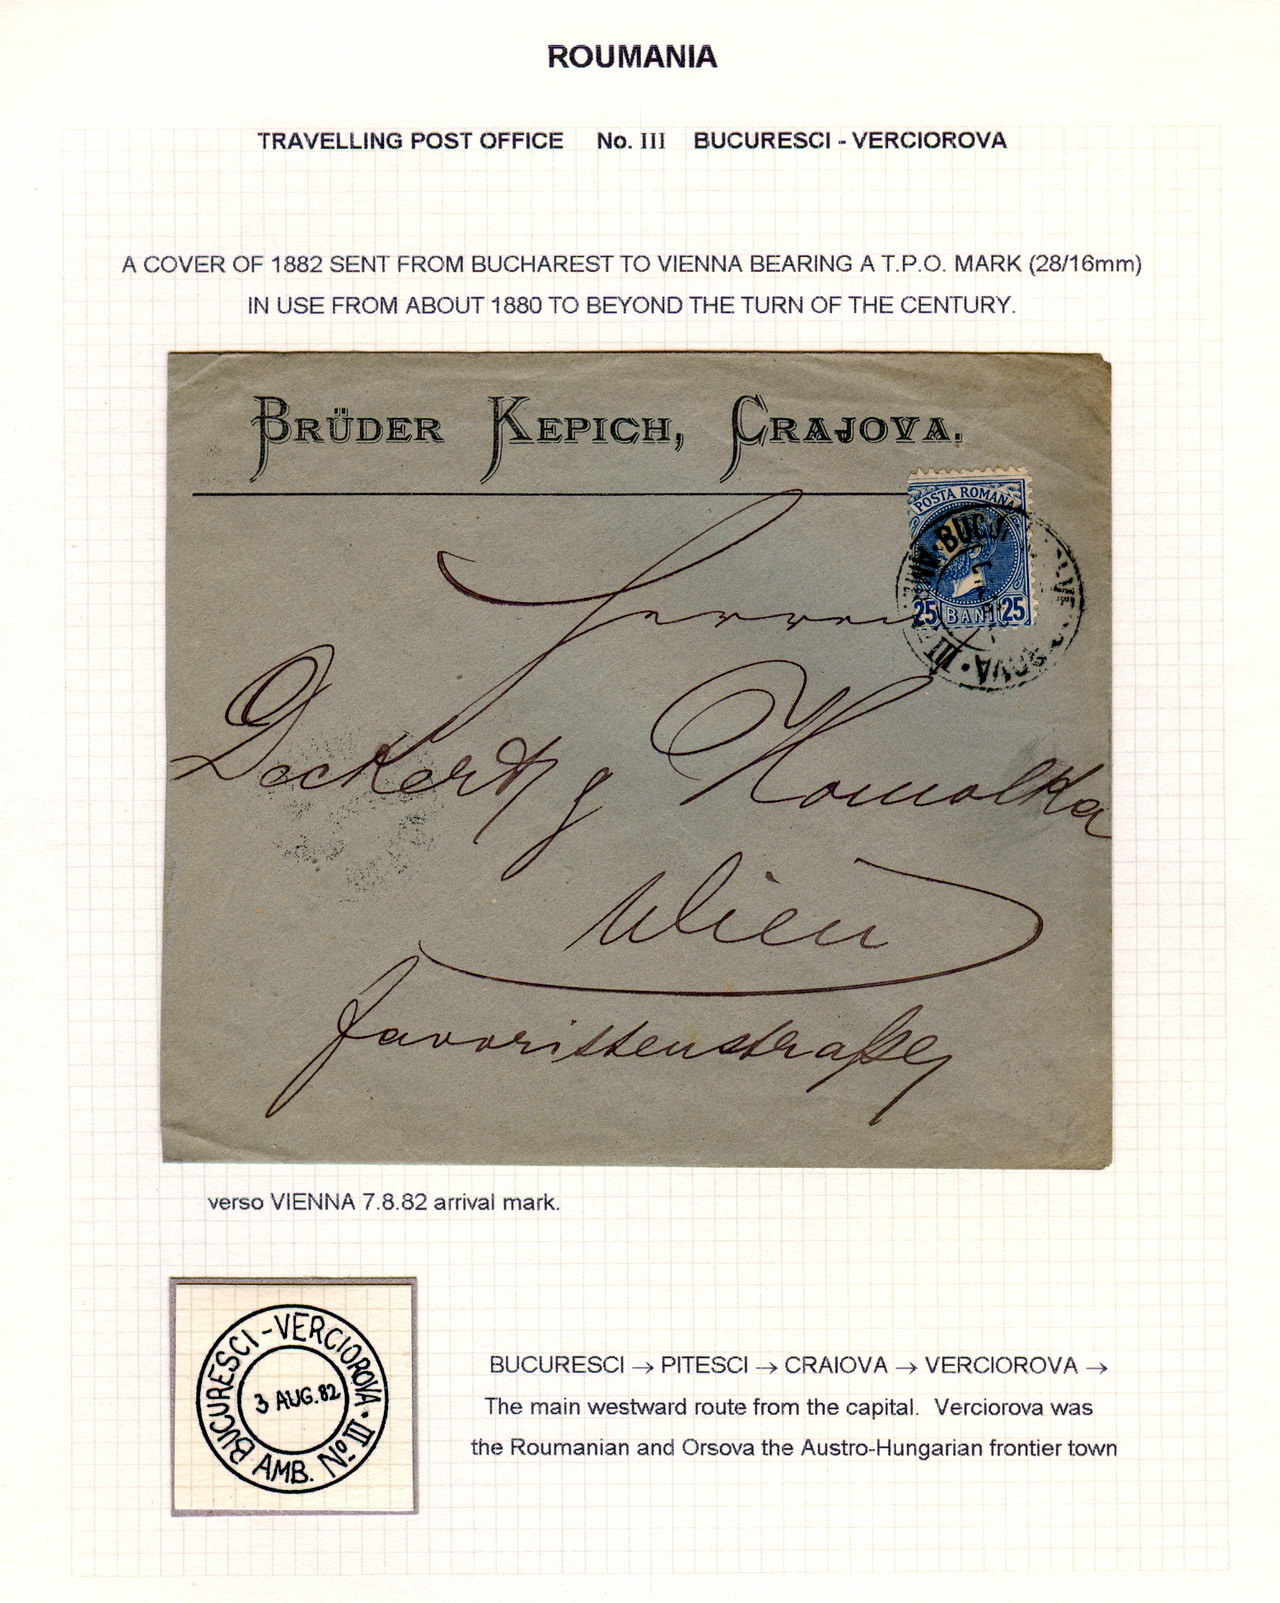 ROUMANIA
TRAVELLING POST OFFICE No. III BUCURESCI - VERCIOROVA
A COVER OF 1882 SENT FROM BUCHAREST TO VIENNA BEARING A T.P.O. MARK (28/16mm)
IN USE FROM ABOUT 1880 TO BEYOND THE TURN OF THE CENTURY.
BRÜDER KEPICH, CRAJOVA.
POSTA ROMANA
25 BANI 25
Herren
Deckert & Homolka
Wien
Favoritenstraße
verso VIENNA 7.8.82 arrival mark.
BUCURESCI - VERCIOROVA · III
3 AUG. 82
AMB. No
BUCURESCI → PITESCI → CRAIOVA → VERCIOROVA →
The main westward route from the capital. Verciorova was
the Roumanian and Orsova the Austro-Hungarian frontier town